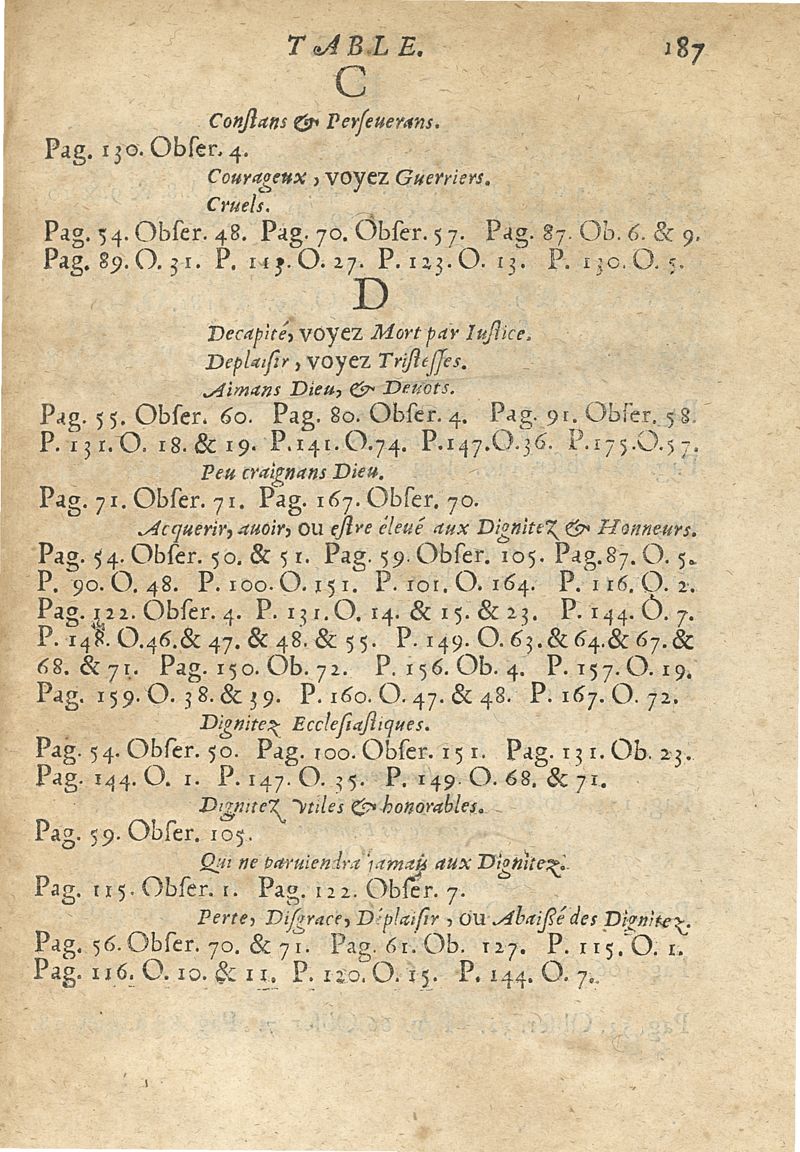 TABLE. 187
C
Conſtans & Perſeuerans.
Pag. 130. Obſer. 4.
Courageux, voyez Guerriers.
Cruels.
Pag. 54. Obſer. 48. Pag. 70. Obſer. 57. Pag. 87. Ob. 6. & 9.
Pag. 89. O. 31. P. 113. O. 27. P. 123. O. 13. P. 130. O. 5.
D
Decapité, voyez Mort par Iuſtice.
Deplaiſir, voyez Triſteſſes.
Aimans Dieu, & Deuots.
Pag. 55. Obſer. 60. Pag. 80. Obſer. 4. Pag. 91. Obſer. 58.
P. 131. O. 18. & 19. P. 141. O. 74. P. 147. O. 36. P. 175. O. 57.
Peu craignans Dieu.
Pag. 71. Obſer. 71. Pag. 167. Obſer. 70.
Acquerir, auoir, ou eſtre éleué aux Dignitez & Honneurs.
Pag. 54. Obſer. 50. & 51. Pag. 59. Obſer. 105. Pag. 87. O. 5.
P. 90. O. 48. P. 100. O. 151. P. 101. O. 164. P. 116. O. 2.
Pag. 122. Obſer. 4. P. 131. O. 14. & 15. & 23. P. 144. O. 7.
P. 148. O. 46. & 47. & 48. & 55. P. 149. O. 63. & 64. & 67. &
68. & 71. Pag. 150. Ob. 72. P. 156. Ob. 4. P. 157. O. 19.
Pag. 159. O. 38. & 39. P. 160. O. 47. & 48. P. 167. O. 72.
Dignitez Eccleſiaſtiques.
Pag. 54. Obſer. 50. Pag. 100. Obſer. 151. Pag. 131. Ob. 23.
Pag. 144. O. 1. P. 147. O. 35. P. 149. O. 68. & 71.
Dignitez vtiles & honorables.
Pag. 59. Obſer. 105.
Qui ne paruiendra jamais aux Dignitez.
Pag. 115. Obſer. 1. Pag. 122. Obſer. 7.
Perte, Diſgrace, Déplaiſir, ou Abaißé des Dignitez.
Pag. 56. Obſer. 70. & 71. Pag. 61. Ob. 127. P. 115. O. 1.
Pag. 116. O. 10. & 11. P. 120. O. 15. P. 144. O. 7.